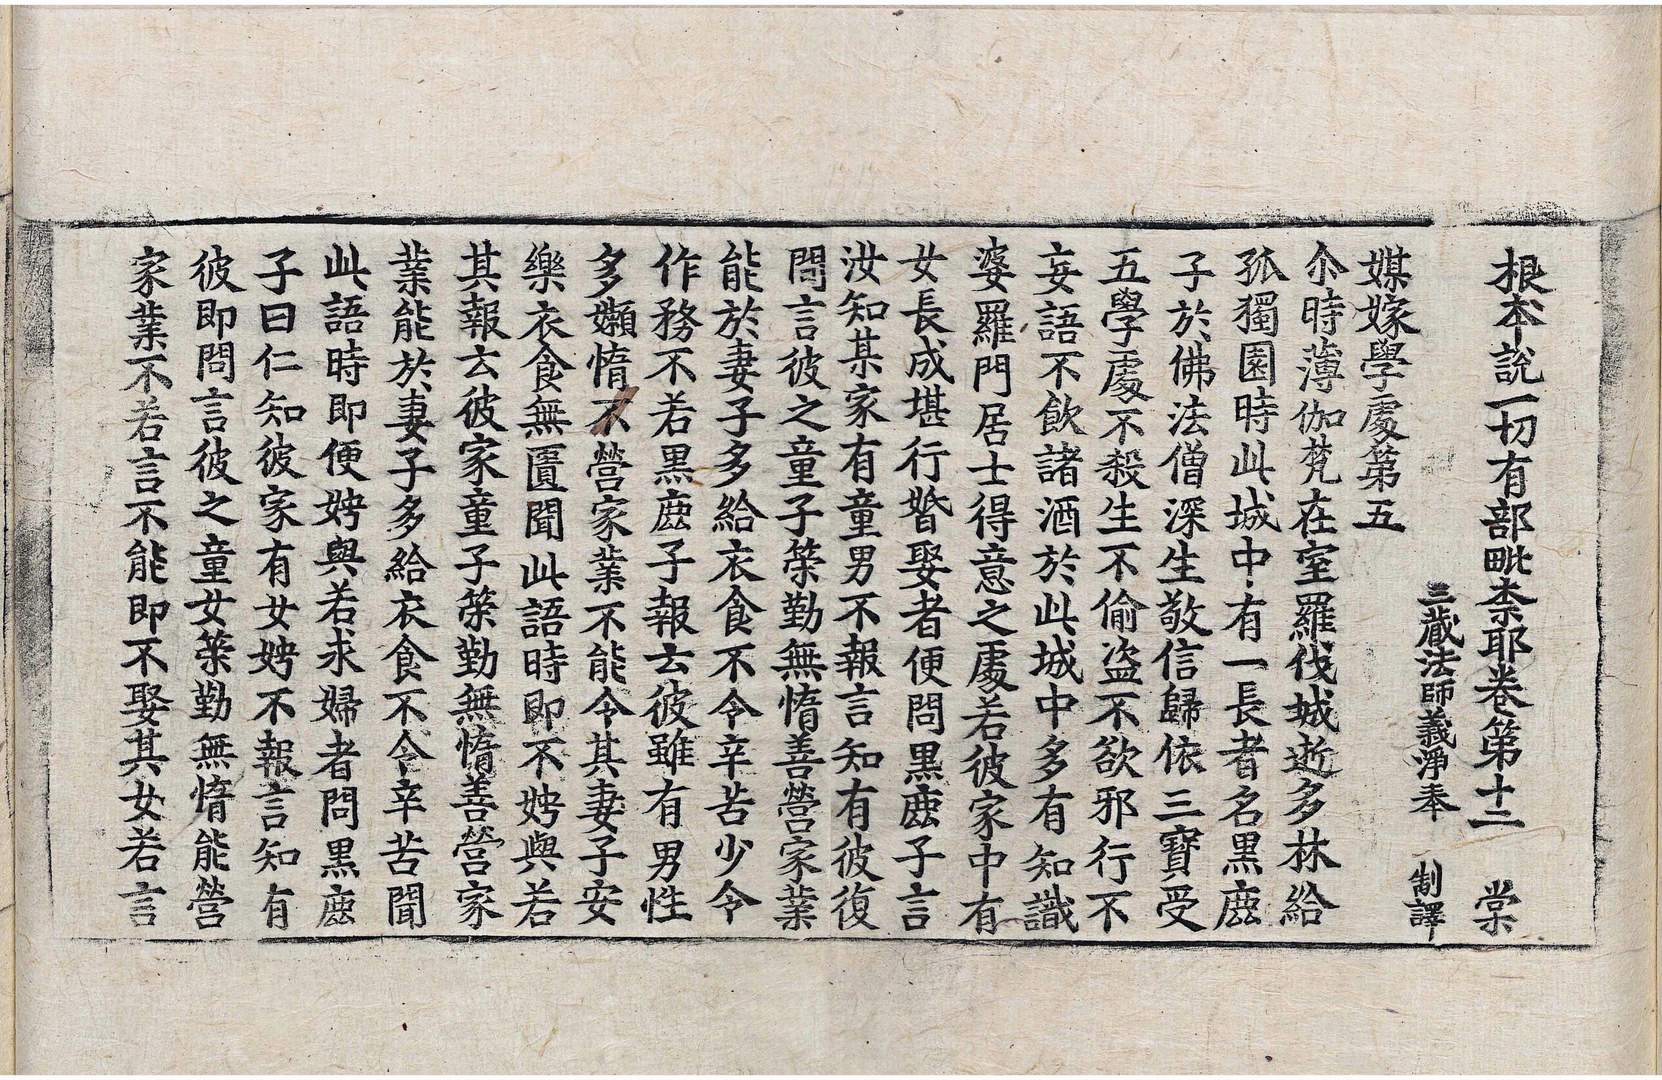 根本說一切有部毗柰耶卷第十二　棠
三藏法師義淨奉　制譯
媒嫁學處第五
尒時薄伽梵在室羅伐城逝多林給
孤獨園時此城中有一長者名黑鹿
子於佛法僧深生敬信歸依三寶受
五學處不殺生不偷盜不欲邪行不
妄語不飲諸酒於此城中多有知識
婆羅門居士得意之處若彼家中有
女長成堪行婚娶者便問黑鹿子言
汝知某家有童男不報言知有彼復
問言彼之童子策勤無惰善營家業
能於妻子多給衣食不令辛苦少令
作務不若黑鹿子報云彼雖有男性
多嬾惰不營家業不能令其妻子安
樂衣食無匱聞此語時即不娉與若
其報云彼家童子策勤無惰善營家
業能於妻子多給衣食不令辛苦聞
此語時即便娉與若求婦者問黑鹿
子曰仁知彼家有女娉不報言知有
彼即問言彼之童女策勤無惰能營
家業不若言不能即不娶其女若言